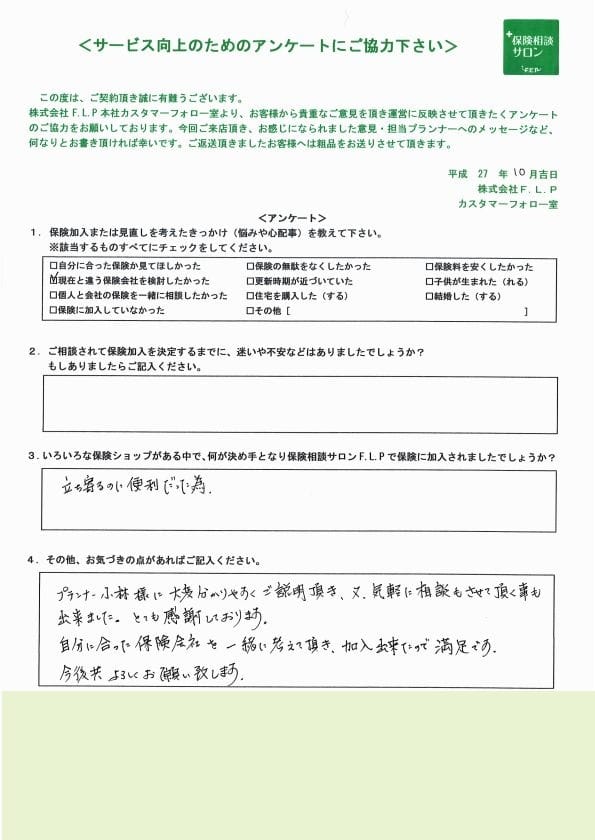 ＜サービス向上のためのアンケートにご協力下さい＞
保険相談
サロン
F.L.P
この度は、ご契約頂き誠に有難うございます。
株式会社Ｆ.Ｌ.Ｐ本社カスタマーフォロー室より、お客様から貴重なご意見を頂き運営に反映させて頂きたくアンケート
のご協力をお願いしております。今回ご来店頂き、お感じになられました意見・担当プランナーへのメッセージなど、
何なりとお書き頂ければ幸いです。ご返送頂きましたお客様へは粗品をお送りさせて頂きます。
平成 27 年 10 月吉日
株式会社Ｆ.Ｌ.Ｐ
カスタマーフォロー室
＜アンケート＞
１．保険加入または見直しを考えたきっかけ（悩みや心配事）を教えて下さい。
※該当するものすべてにチェックをしてください。
□自分に合った保険か見てほしかった □保険の無駄をなくしたかった □保険料を安くしたかった
☑現在と違う保険会社を検討したかった □更新時期が近づいていた □子供が生まれた（れる）
□個人と会社の保険を一緒に相談したかった □住宅を購入した（する） □結婚した（する）
□保険に加入していなかった □その他［ ］
２．ご相談されて保険加入を決定するまでに、迷いや不安などはありましたでしょうか？
もしありましたらご記入ください。
３.いろいろな保険ショップがある中で、何が決め手となり保険相談サロンF.L.Pで保険に加入されましたでしょうか？
立ち寄るのに便利だった為.
４．その他、お気づきの点があればご記入ください。
プランナー小林様に大変分かりやすくご説明頂き、又、気軽に相談もさせて頂く事も
出来ました。とても感謝しております。
自分に合った保険会社を一緒に考えて頂き、加入出来たので満足です。
今後共よろしくお願い致します。